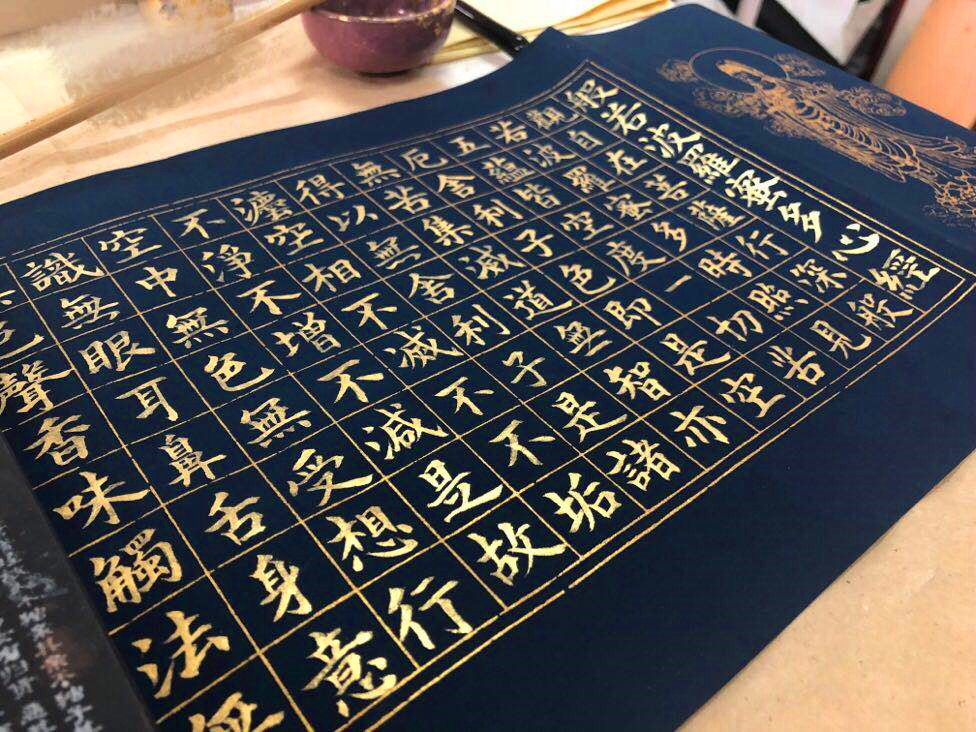 般若波羅蜜多心經
觀自在菩薩行深般
若波羅蜜多時照見
五蘊皆空度一切苦
厄舍利子色即是空
無苦集滅道無智亦
得以無舍利子是諸
灋空相不滅不不垢
不淨不增不減是故
空中無色無受想行
識無眼耳鼻舌身意
色聲香味觸法無